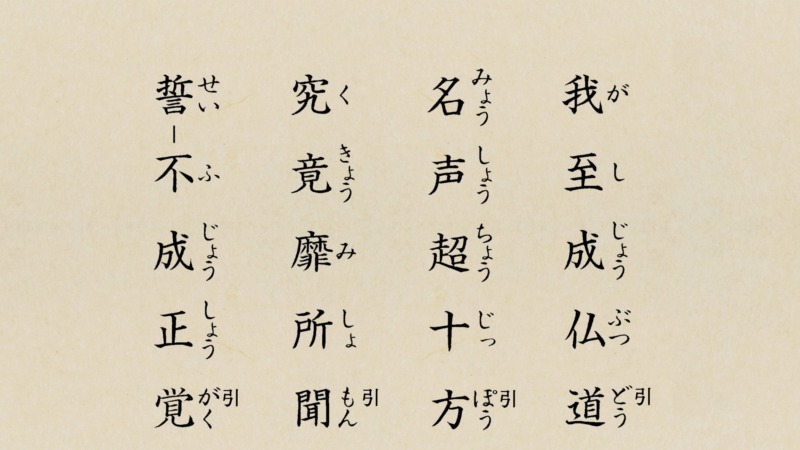 我至成仏道
が し じょう ぶつ どう 引
名声超十方
みょう しょう ちょう じっ ぽう 引
究竟靡所聞
く きょう み しょ もん 引
誓｜不成正覚
せい ふ じょう しょう がく 引